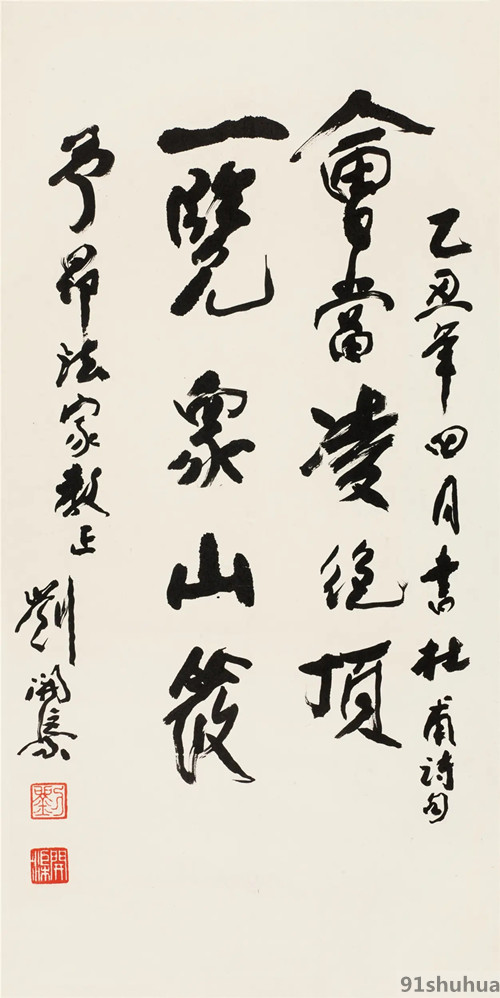 乙丑年四月書杜甫詩句
會當凌絕頂
一覽眾山筱
予昂法家教正
劉開渠
劉
開渠
91shuhua